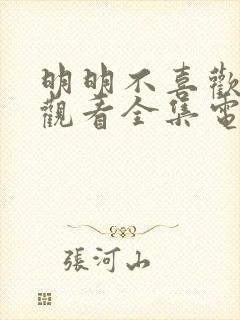 明明不喜歡
觀看全集電
張河山